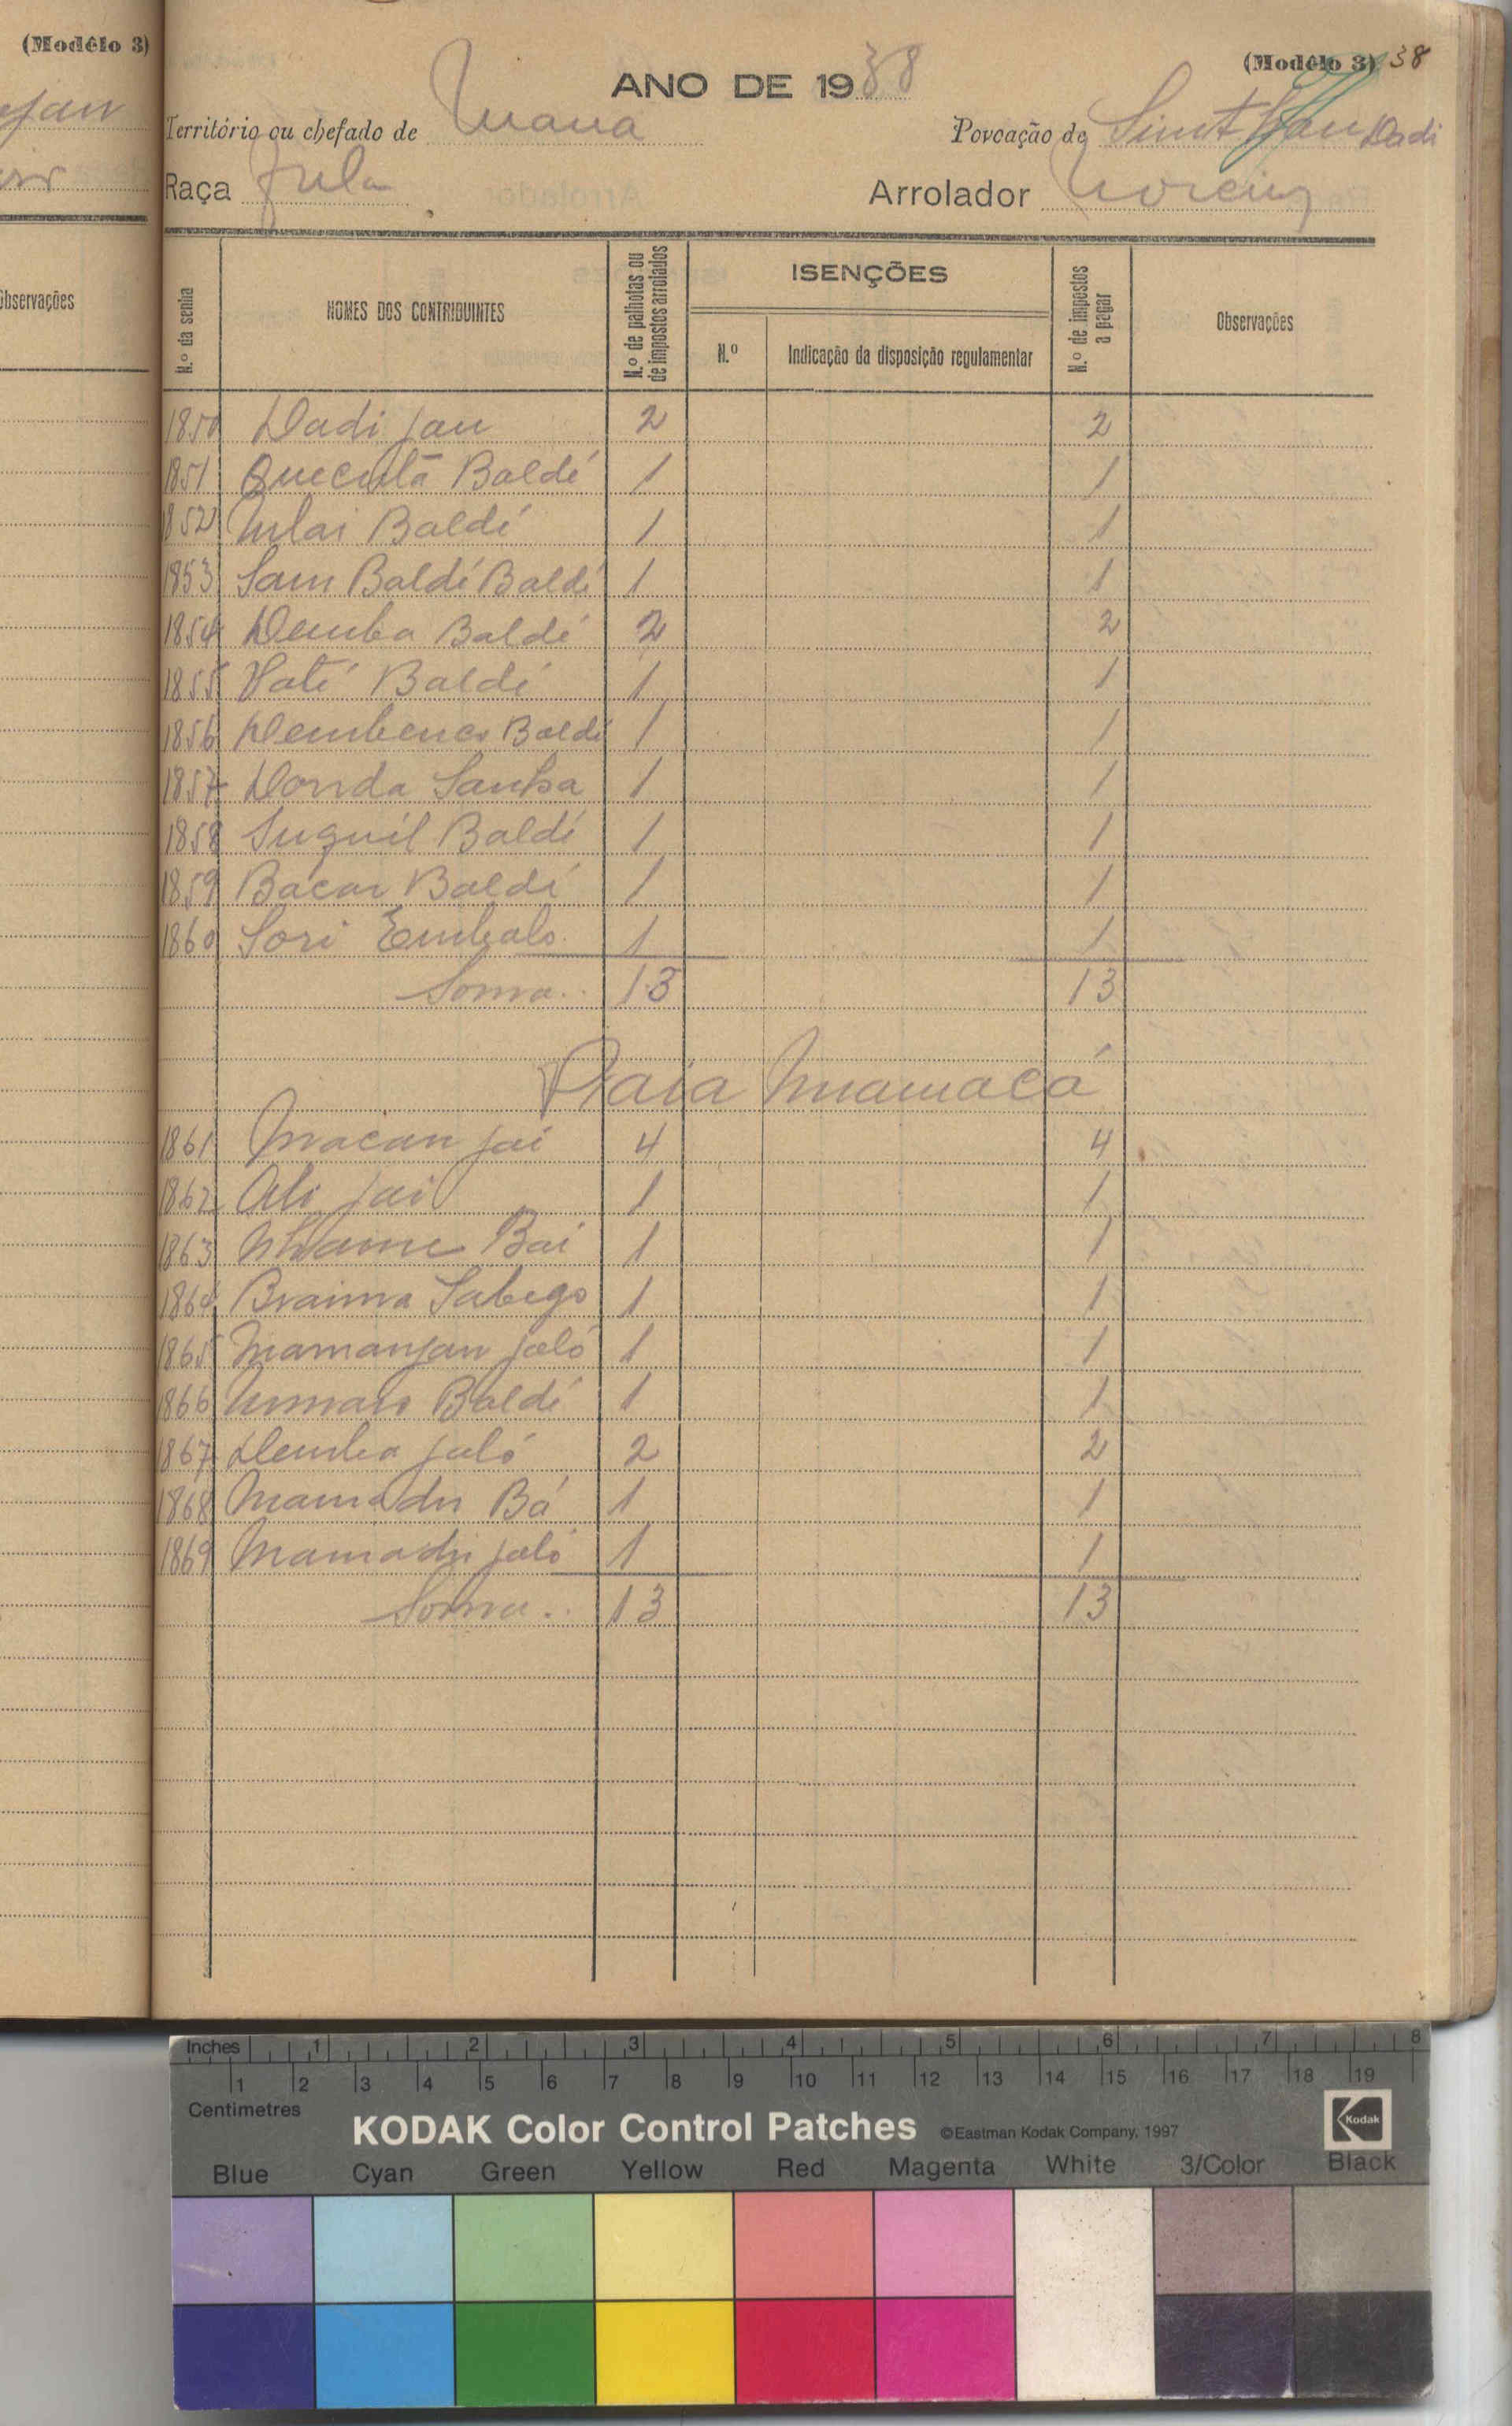 (Modêlo 3)
Observações
(Modêlo 3) 38
ANO DE 1938
Território ou chefado de Mana
Povoação de Sint Jau Dadi
Raça Fula
Arrolador Moreira
N.º da senha
NOMES DOS CONTRIBUINTES
N.º de palhotas ou de impostos arrolados
ISENÇÕES
N.º
Indicação da disposição regulamentar
N.º de impostos a pagar
Observações
1850 Dadi Jau 2 2
1851 Quecutã Baldé 1 1
1852 Mulai Baldé 1 1
1853 Sam Baldé Baldé 1 1
1854 Demba Baldé 2 2
1855 Paté Baldé 1 1
1856 Baldé 1 1
1857 Donda Sanha 1 1
1858 Suguil Baldé 1 1
1859 Bacar Baldé 1 1
1860 Sori Embalo 1 1
Soma.. 13 13
Mamacá
1861 Macan Jai 4 4
1862 Ali Jai 1 1
1863 Bai 1 1
1864 Braima Sabego 1 1
1865 Mamanjan Jaló 1 1
1866 Umaro Baldé 1 1
1867 Demba Jaló 2 2
1868 Mamadu Bá 1 1
1869 Mamadu Jaló 1 1
Soma.. 13 13
Inches 1 2 3 4 5 6 7 8
1 2 3 4 5 6 7 8 9 10 11 12 13 14 15 16 17 18 19
Centimetres
KODAK Color Control Patches ©Eastman Kodak Company, 1997 Kodak
Blue Cyan Green Yellow Red Magenta White 3/Color Black